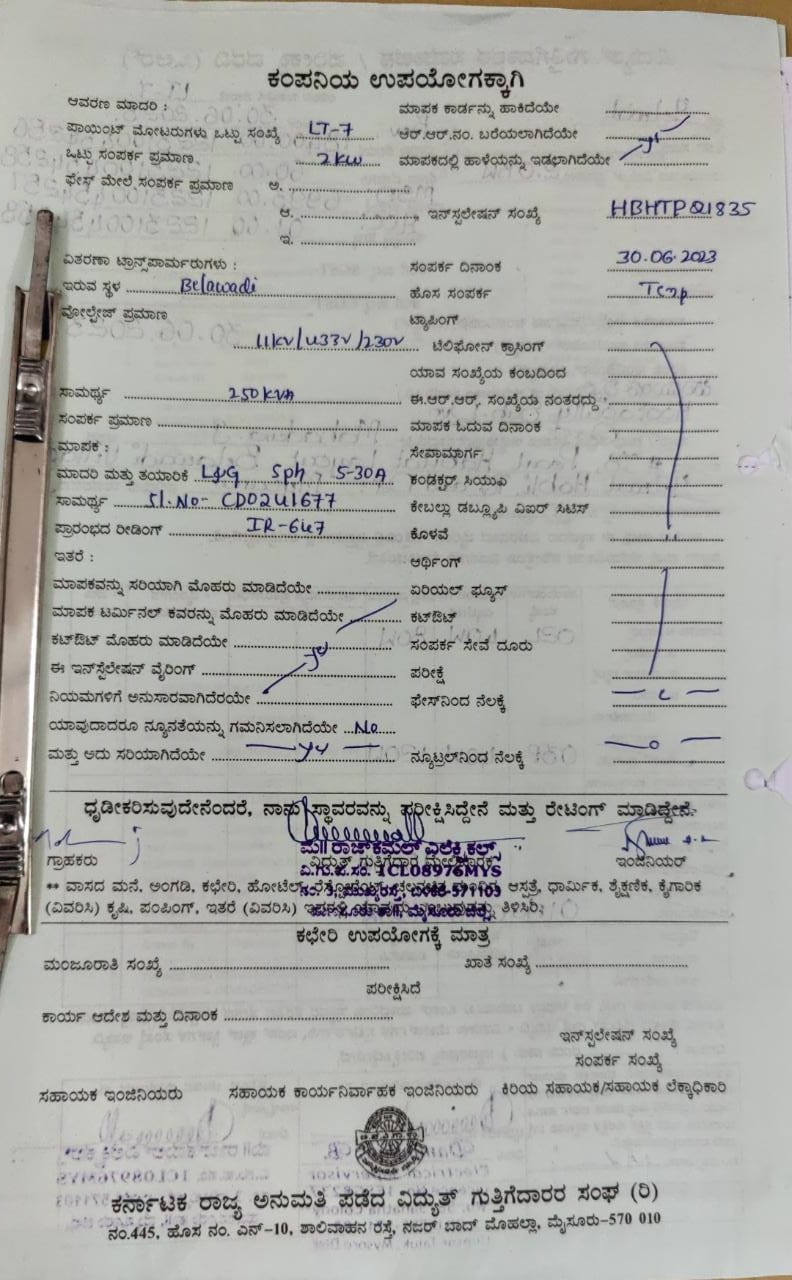 ಕಂಪನಿಯ ಉಪಯೋಗಕ್ಕಾಗಿ
ಆವರಣ ಮಾದರಿ : ಮಾಪಕ ಕಾರ್ಡನ್ನು ಹಾಕಿದೆಯೇ
ಪಾಯಿಂಟ್ ಮೋಟರುಗಳು ಒಟ್ಟು ಸಂಖ್ಯೆ LT-7 ಆರ್.ಆರ್.ನಂ. ಬರೆಯಲಾಗಿದೆಯೇ
ಒಟ್ಟು ಸಂಪರ್ಕ ಪ್ರಮಾಣ 2kw ಮಾಪಕದಲ್ಲಿ ಹಾಳೆಯನ್ನು ಇಡಭಾಗಿದೆಯೇ yes
ಫೇಸ್ ಮೇಲೆ ಸಂಪರ್ಕ ಪ್ರಮಾಣ ಅ.
ಆ. ಇನ್‌ಸ್ಟಲೇಷನ್ ಸಂಖ್ಯೆ HBHTP01835
ಇ.
ವಿತರಣಾ ಟ್ರಾನ್ಸ್‌ಪಾರ್ಮರುಗಳು : ಸಂಪರ್ಕ ದಿನಾಂಕ 30.06.2023
ಇರುವ ಸ್ಥಳ Belawadi ಹೊಸ ಸಂಪರ್ಕ Temp
ವೋಲ್ಟೇಜ್ ಪ್ರಮಾಣ ಟ್ಯಾಪಿಂಗ್
11kv/433v/230v ಟೆಲಿಫೋನ್ ಕ್ರಾಸಿಂಗ್
ಯಾವ ಸಂಖ್ಯೆಯ ಕಂಬದಿಂದ
ಸಾಮರ್ಥ್ಯ 250kVA ಈ.ಆರ್.ಆರ್. ಸಂಖ್ಯೆಯ ನಂತರದ್ದು
ಸಂಪರ್ಕ ಪ್ರಮಾಣ ಮಾಪಕ ಓದುವ ದಿನಾಂಕ
ಮಾಪಕ : ಸೇವಾಮಾರ್ಗ
ಮಾದರಿ ಮತ್ತು ತಯಾರಿಕೆ L&G Sph, 5-30A ಕಂಡಕ್ಟರ್ ಸಿಯುಎ
ಸಾಮರ್ಥ್ಯ Sl.No- CD0241677 ಕೇಬಲ್ಲು ಡಬ್ಲ್ಯೂಪಿ ವಿಐರ್ ಸಿಟಿಸ್
ಪ್ರಾರಂಭದ ರೀಡಿಂಗ್ IR-647 ಕೊಳವೆ
ಇತರೆ : ಆರ್ಥಿಂಗ್
ಮಾಪಕವನ್ನು ಸರಿಯಾಗಿ ಮೊಹರು ಮಾಡಿದೆಯೇ ಏರಿಯಲ್ ಫ್ಯೂಸ್
ಮಾಪಕ ಟರ್ಮಿನಲ್ ಕವರನ್ನು ಮೊಹರು ಮಾಡಿದೆಯೇ ಕಟ್‌ಔಟ್
ಕಟ್‌ಔಟ್ ಮೊಹರು ಮಾಡಿದೆಯೇ yes ಸಂಪರ್ಕ ಸೇವೆ ದೂರು
ಈ ಇನ್‌ಸ್ಟೆಲೇಷನ್ ವೈರಿಂಗ್ ಪರೀಕ್ಷೆ
ನಿಯಮಗಳಿಗೆ ಅನುಸಾರವಾಗಿದೆರಯೇ ಫೇಸ್‌ನಿಂದ ನೆಲಕ್ಕೆ
ಯಾವುದಾದರೂ ನ್ಯೂನತೆಯನ್ನು ಗಮನಿಸಲಾಗಿದೆಯೇ No
ಮತ್ತು ಅದು ಸರಿಯಾಗಿದೆಯೇ yes ನ್ಯೂಟ್ರಲ್‌ನಿಂದ ನೆಲಕ್ಕೆ
ಧೃಡೀಕರಿಸುವುದೇನೆಂದರೆ, ನಾನು ಸ್ಥಾವರವನ್ನು ಪರೀಕ್ಷಿಸಿದ್ದೇನೆ ಮತ್ತು ರೇಟಿಂಗ್ ಮಾಡಿದ್ದೇನೆ.
ಮ॥ ರಾಜ್‌ಕಮಲ್ ಎಲೆಕ್ಟ್ರಿಕಲ್ಸ್
ಗ್ರಾಹಕರು ವಿದ್ಯುತ್ ಗುತ್ತಿಗೆದಾರ ಇಂಜಿನಿಯರ್
ವಿ.ಗು.ಪ.ಸಂ. 1CL08976MYS
** ವಾಸದ ಮನೆ, ಅಂಗಡಿ, ಕಛೇರಿ, ಹೋಟೆಲ್, ಆಸ್ಪತ್ರೆ, ಧಾರ್ಮಿಕ, ಶೈಕ್ಷಣಿಕ, ಕೈಗಾರಿಕ
(ವಿವರಿಸಿ) ಕೃಷಿ, ಪಂಪಿಂಗ್, ಇತರೆ (ವಿವರಿಸಿ) ತಿಳಿಸಿರಿ.
ಕಛೇರಿ ಉಪಯೋಗಕ್ಕೆ ಮಾತ್ರ
ಮಂಜೂರಾತಿ ಸಂಖ್ಯೆ ಖಾತೆ ಸಂಖ್ಯೆ
ಪರೀಕ್ಷಿಸಿದೆ
ಕಾರ್ಯ ಆದೇಶ ಮತ್ತು ದಿನಾಂಕ
ಇನ್‌ಸ್ಪಲೇಷನ್ ಸಂಖ್ಯೆ
ಸಂಪರ್ಕ ಸಂಖ್ಯೆ
ಸಹಾಯಕ ಇಂಜಿನಿಯರು ಸಹಾಯಕ ಕಾರ್ಯನಿರ್ವಾಹಕ ಇಂಜಿನಿಯರು ಕಿರಿಯ ಸಹಾಯಕ/ಸಹಾಯಕ ಲೆಕ್ಕಾಧಿಕಾರಿ
ಕರ್ನಾಟಕ ರಾಜ್ಯ ಅನುಮತಿ ಪಡೆದ ವಿದ್ಯುತ್ ಗುತ್ತಿಗೆದಾರರ ಸಂಘ (ರಿ)
ನಂ.445, ಹೊಸ ನಂ. ಎನ್-10, ಶಾಲಿವಾಹನ ರಸ್ತೆ, ನಜರ್ ಬಾದ್ ಮೊಹಲ್ಲಾ, ಮೈಸೂರು-570 010